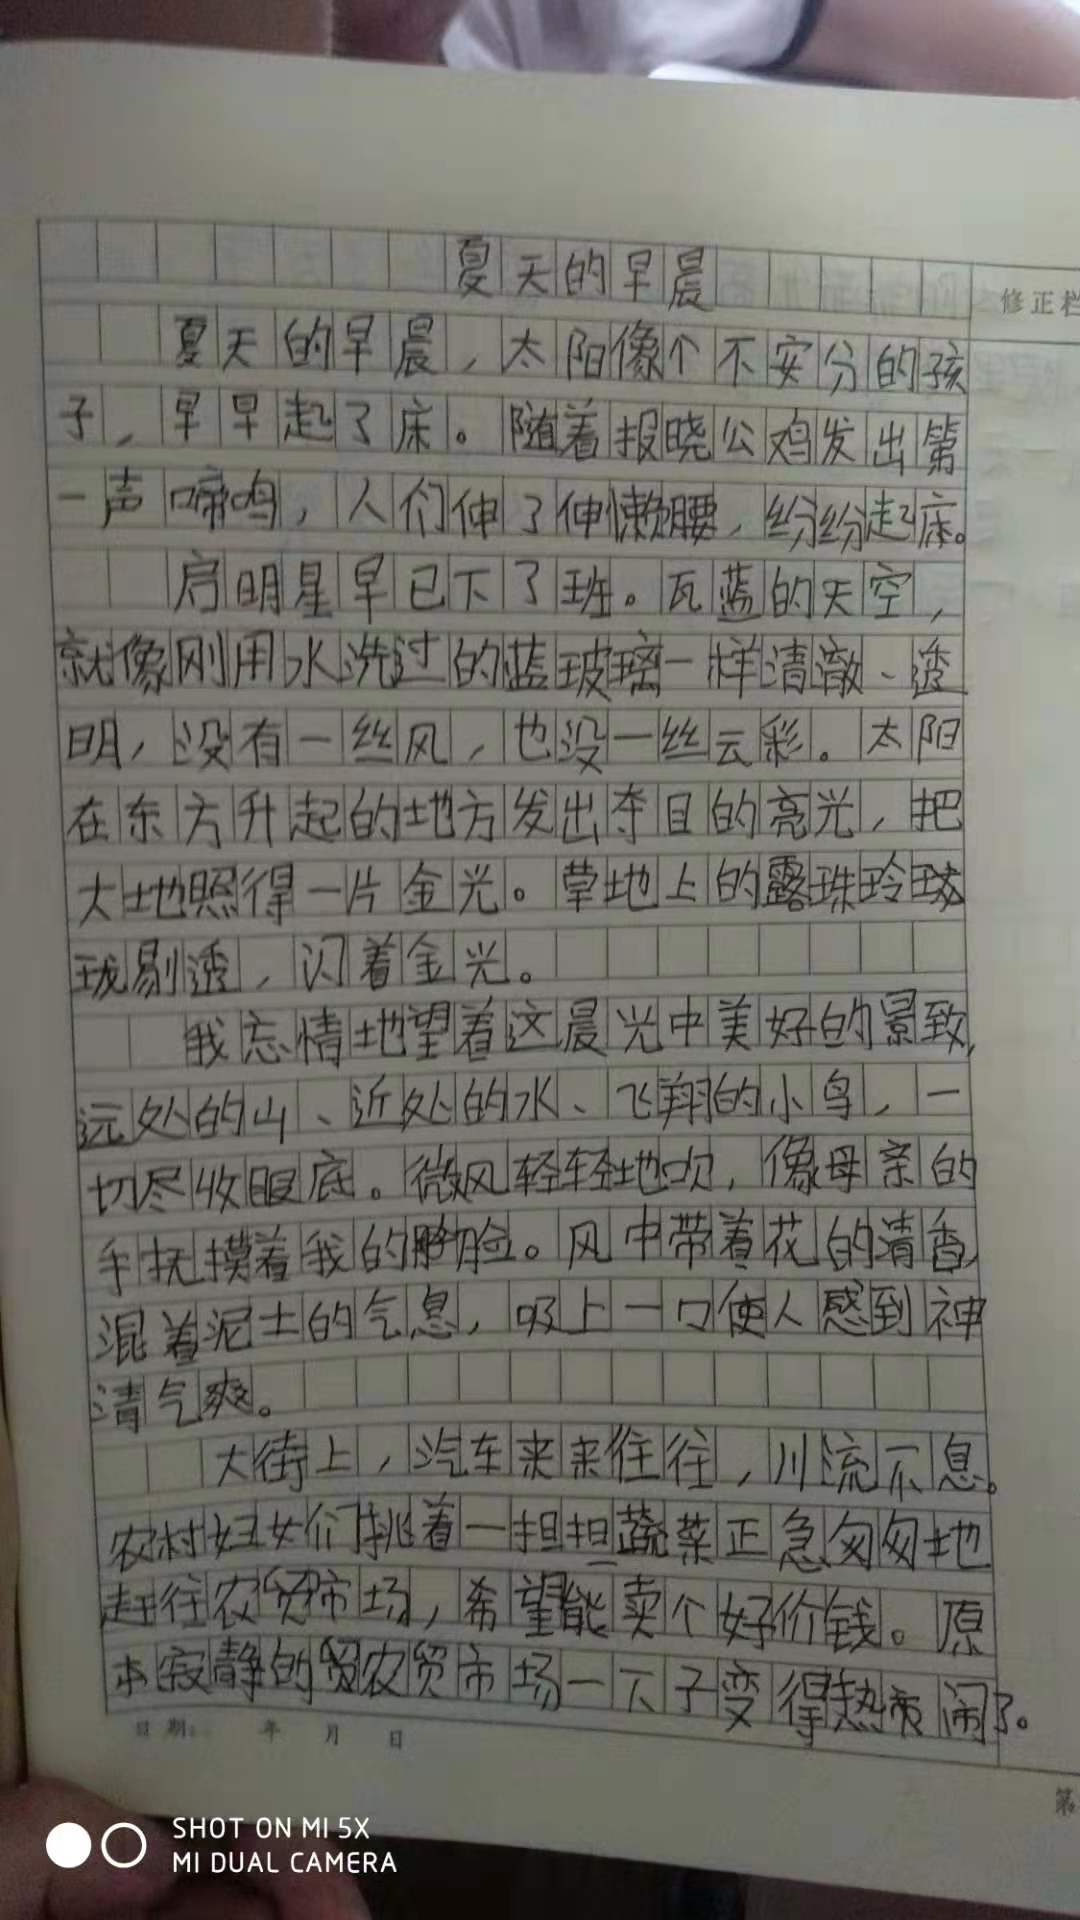 夏天的早晨
修正栏
夏天的早晨，太阳像个不安分的孩
子，早早起了床。随着报晓公鸡发出第
一声啼鸣，人们伸了伸懒腰，纷纷起床。
启明星早已下了班。瓦蓝的天空，
就像刚用水洗过的蓝玻璃一样清澈、透
明，没有一丝风，也没一丝云彩。太阳
在东方升起的地方发出夺目的亮光，把
大地照得一片金光。草地上的露珠玲珑
珑剔透，闪着金光。
我忘情地望着这晨光中美好的景致，
远处的山、近处的水、飞翔的小鸟，一
切尽收眼底。微风轻轻地吹，像母亲的
手抚摸着我的脸。风中带着花的清香，
混着泥土的气息，吸上一口使人感到神
清气爽。
大街上，汽车来来往往，川流不息。
农村妇女们挑着一担担蔬菜正急匆匆地
赶往农贸市场，希望能卖个好价钱。原
本寂静的农贸市场一下子变得热闹了。
日期： 年 月 日
第
SHOT ON MI 5X
MI DUAL CAMERA